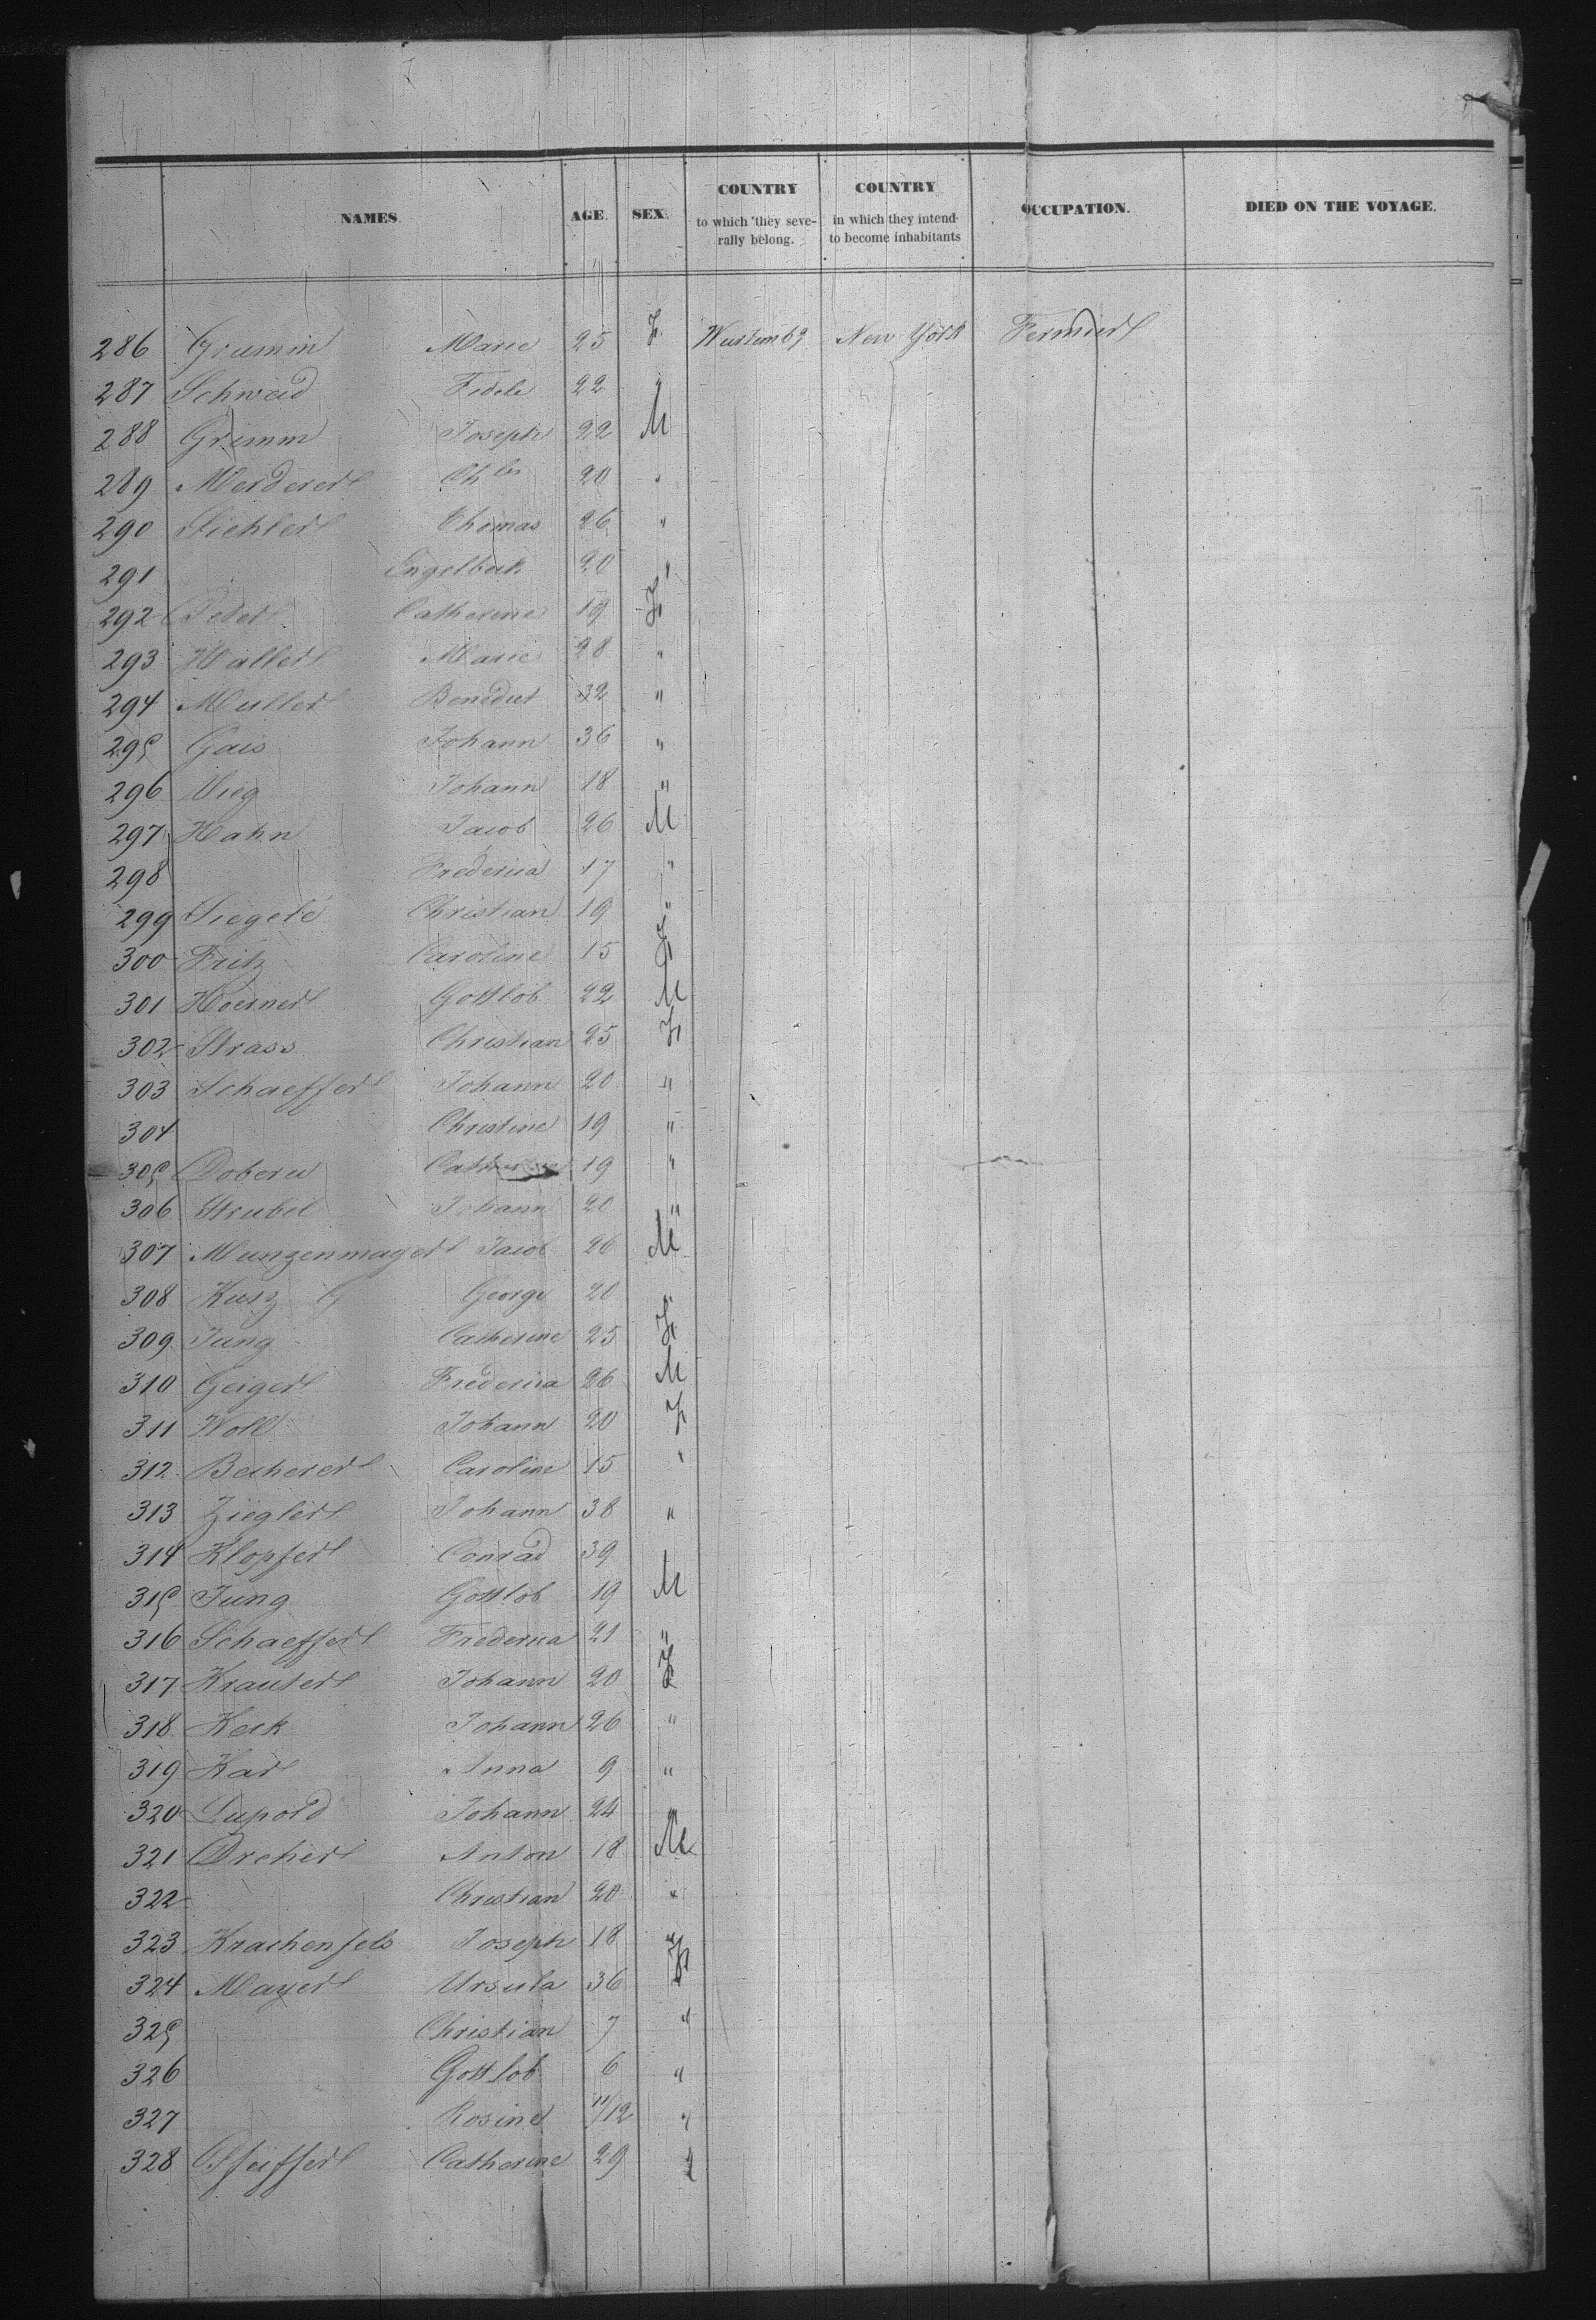 NAMES. AGE. SEX. COUNTRY to which they seve- COUNTRY in which they intend OCCUPATION. DIED ON THE VOYAGE.
rally belong. to become inhabitants
286 Grumin Marie 25 F. Wurtembg New York Fermier
287 Schweid Fidele 22 "
288 Grimm Joseph 22 M
289 Merderer Chles 20 "
290 Fiehler Thomas 26 "
291 Engelbert 20 "
292 Peter Catherine 19 F
293 Waller Marie 28 "
294 Muller Benedict 32 "
295 Gais Johann 36 "
296 Vieg Johann 18 "
297 Hahn Jacob 26 M
298 Frederica 17 "
299 Siegele Christian 19 "
300 Fritz Caroline 15 F
301 Hoerner Gottlob 22 M
302 Strass Christian 25 F
303 Schaeffer Johann 20 "
304 Christine 19 "
305 Doberu Catherine 19 "
306 Strubel Johann 20 "
307 Munzenmager Jacob 26 M
308 Kurz G George 20 "
309 Jung Catherine 25 F
310 Geiger Frederica 26 M
311 Woll Johann 20 F
312 Becherer Caroline 15 "
313 Ziegler Johann 38 "
314 Klopfer Conrad 39 "
315 Jung Gottlob 19 M
316 Schaeffer Frederica 21 "
317 Krauter Johann 20 F
318 Keck Johann 26 "
319 Karl Anna 9 "
320 Lupold Johann 24 "
321 Dreher Anton 18 M
322 Christian 20 "
323 Krachenfels Joseph 18 "
324 Mayer Ursula 36 F
325 Christian 7 "
326 Gottlob 6 "
327 Rosine 11/12 "
328 Pfeiffer Catherine 29 "